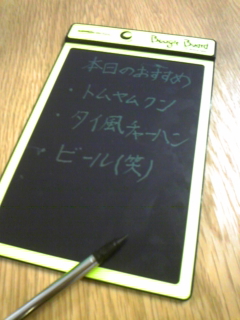 Boogie Board
本日のおすすめ
・トムヤムクン
・タイ風チャーハン
・ビール(笑)